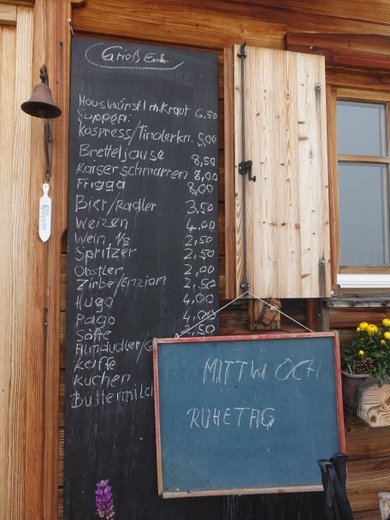 Grieß Enk
Hauswürstl m. Kraut 6.50
Suppen:
Kaspress/Tirolerkn. 5,00
Bretteljause 8,50
Kaiserschmarren 8,00
Frigga 8,00
Bier/Radler 3,50
Weizen 4.00
Wein 1/8 2,50
Spritzer 2,50
Obstler 2,00
Zirbe/Enzian 2,50
Hugo 4,00
Pago 4,00
Säfte 2,50
Almdudler/
Kaffe
Kuchen
Buttermilch
MITTWOCH
RUHETAG